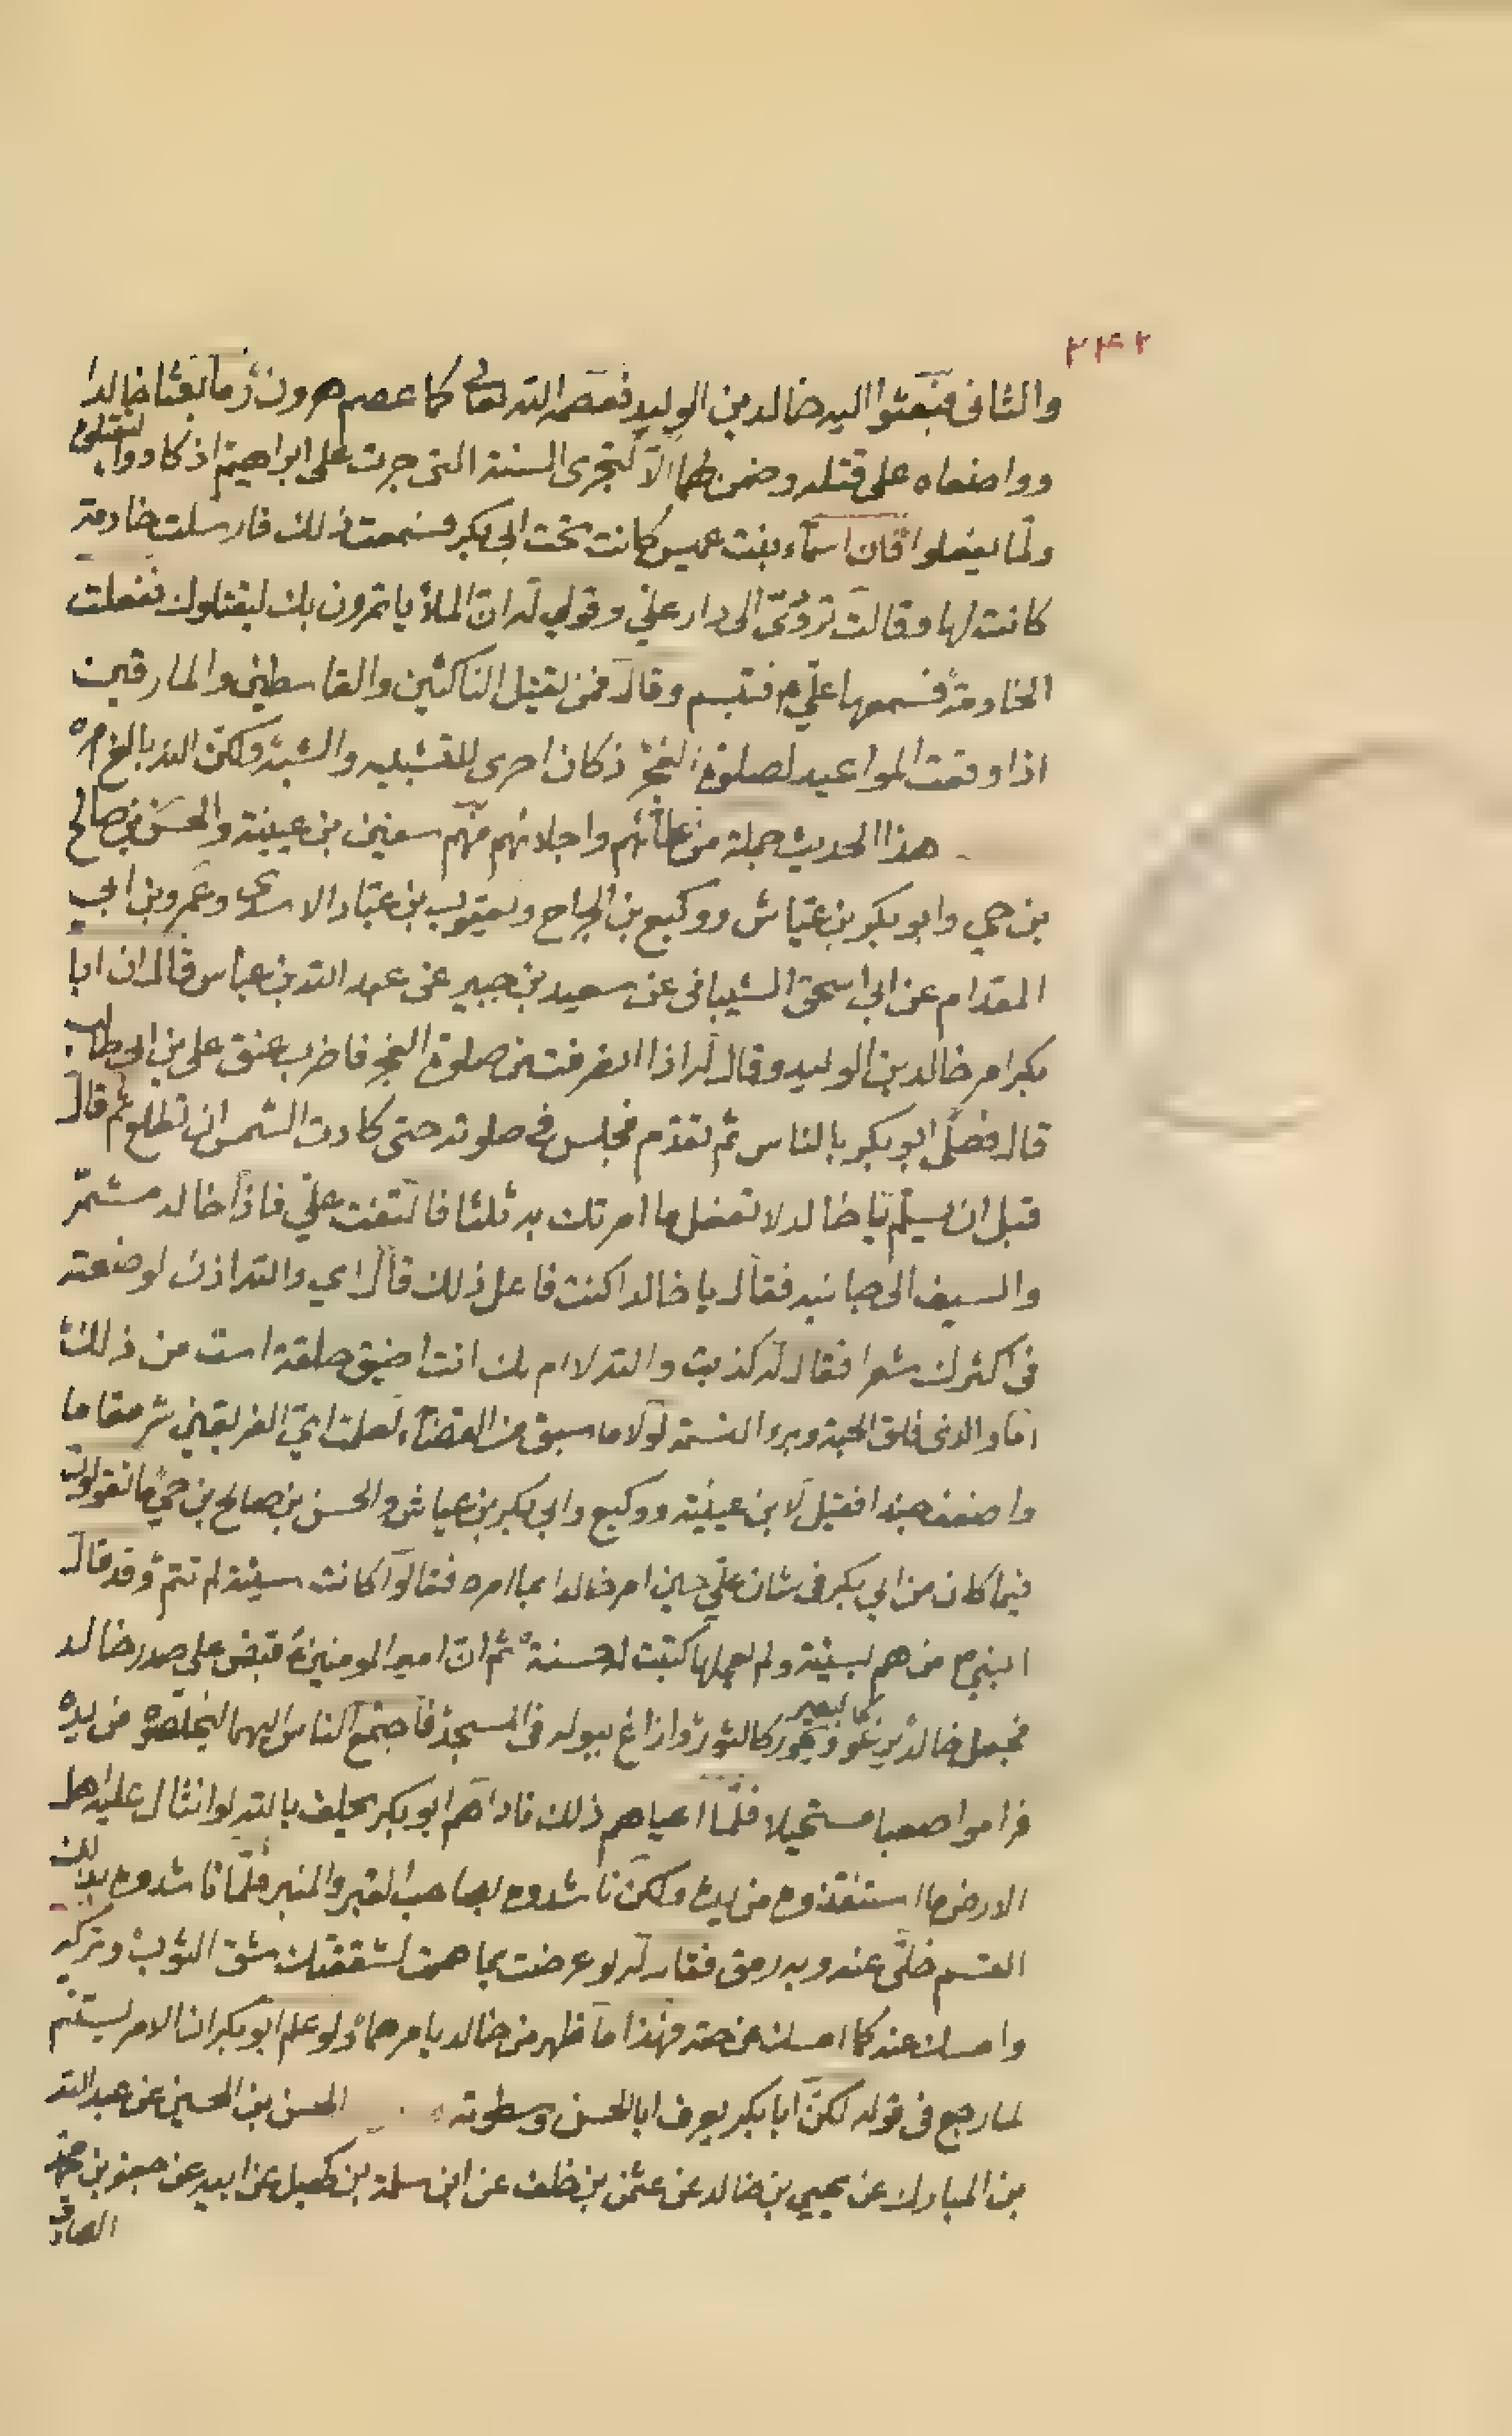 ٢٤٢
والثانى فبعثوا اليه خالد بن الوليد فعصمه الله تعالى كما عصم هرون زمانبعثا خالدا
وواضعاه على قتله وضمن لهما الا لتجرى السنة التى جرت على ابراهيم اذ كادوا ليقتلوه
ولما يفعلوا فان اسماء بنت عميس كانت تحت ابى بكر فسمعت ذلك فارسلت خادمة
كانت لها وقالت تردّدى الى دار علي وقولي له ان الملأ يأتمرون بك ليقتلوك ففعلت
الخادمة فسمعها علي فتبسم وقال فمن يقتل الناكثين والقاسطين والمارقين
اذا وقعت المواعيد لصلوة الفجر اذ كان احرى للتشبيه والشبه ولكن الله بالغ امره
هذا الحديث جملة من علمائهم واجلائهم منهم سفين بن عيينة والحسن بن صالح
بن حي وابو بكر بن عياش ووكيع بن الجراح ويعقوب بن عباد الاسدى وعمرو بن ابي
المقدام عن ابى اسحق الشيبانى عن سعيد بن جبير عن عبد الله بن عباس قال ان ابا
بكر امر خالد بن الوليد وقال له اذا انصرفت من صلوة الفجر فاضرب عنق على بن ابي طالب
قال فصلى ابو بكر بالناس ثم تقدم فجلس فى صلوته حتى كادت الشمس ان تطلع ثم قال
قبل ان يسلم يا خالد لا تفعل ما امرتك به ثلثا فالتفت علي فاذا خالد مشتمر
والسيف الى جانبه فقال يا خالد اكنت فاعل ذلك قال اي والله اذن لوضعته
فى اكثرك شعرا فقال له كذبت والله لا ام لك انت اضيق حلقة است من ذلك
اما والذى فلق الحبة وبرء النسمة لولا ما سبق من القضاء لعلمت اي الفريقين شر مقاما
واضعف جندا فقيل لابن عيينة ووكيع وابي بكر بن عياش والحسن بن صالح بن حي ما تقولون
فيما كان من ابي بكر فى شان علي حين امر خالدا بما امره فقالوا كانت سيئة لم تتم وقد قال
النبي من هم بسيئة ولم يعملها كتبت له حسنة ثم ان امير المومنين قبض على صدر خالد
فجعل خالد يرغو كالبعير ويخور كالثور وازاغ ببوله فى المسجد فاجتمع الناس اليهما ليخلصوه من يده
فراموا صعبا مستحيلا فلما اعياهم ذلك ناداهم ابو بكر يحلف بالله لو انثال عليه اهل
الارض ما استنقذوه من يده ولكن ناشدوه بصاحب القبر والمنبر فلما ناشدوه بذلك
القسم خلى عنه وبه رمق فقال له لو عرضت بما هممت لشققتك شق الثوب وتركه
وامسك عنه كما امسك عن حقه فهذا ما ظهر من خالد بامرهما ولو علم ابو بكر ان الامر يستتم
لما رجع فى قوله لكن ابا بكر يعرف ابا الحسن وسطوته الحسن بن الحسين عن عبد الله
بن المبارك عن يحيي بن خالد عن عثمن بن خلف عن ابن سلمة بن كهيل عن ابيه عن جعفر بن محمد
الصادق